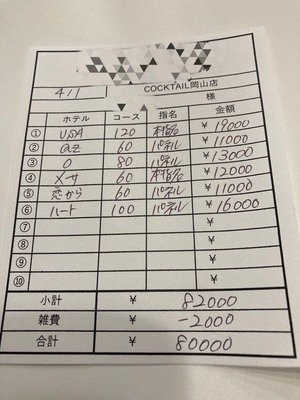 COCKTAIL岡山店
4/1 様
ホテル コース 指名 金額
① USA 120 本指名 ¥ 19000
② az 60 パネル ¥ 11000
③ O 80 パネル ¥ 13000
④ メサ 60 本指名 ¥ 12000
⑤ 恋から 60 パネル ¥ 11000
⑥ ハート 100 パネル ¥ 16000
⑦ ¥
⑧ ¥
⑨ ¥
⑩ ¥
小計 ¥ 82000
雑費 ¥ -2000
合計 ¥ 80000